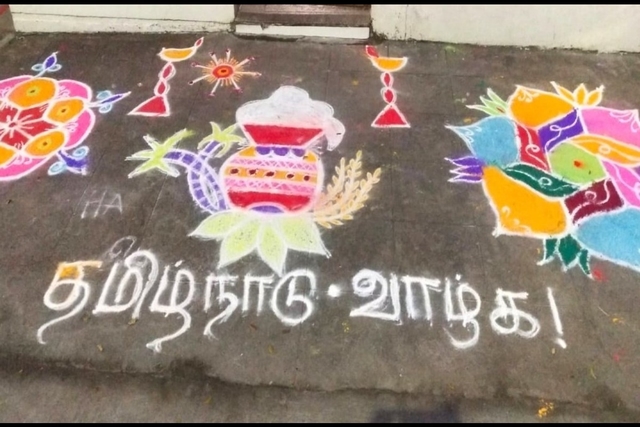 HA
தமிழ்நாடு • வாழ்க!